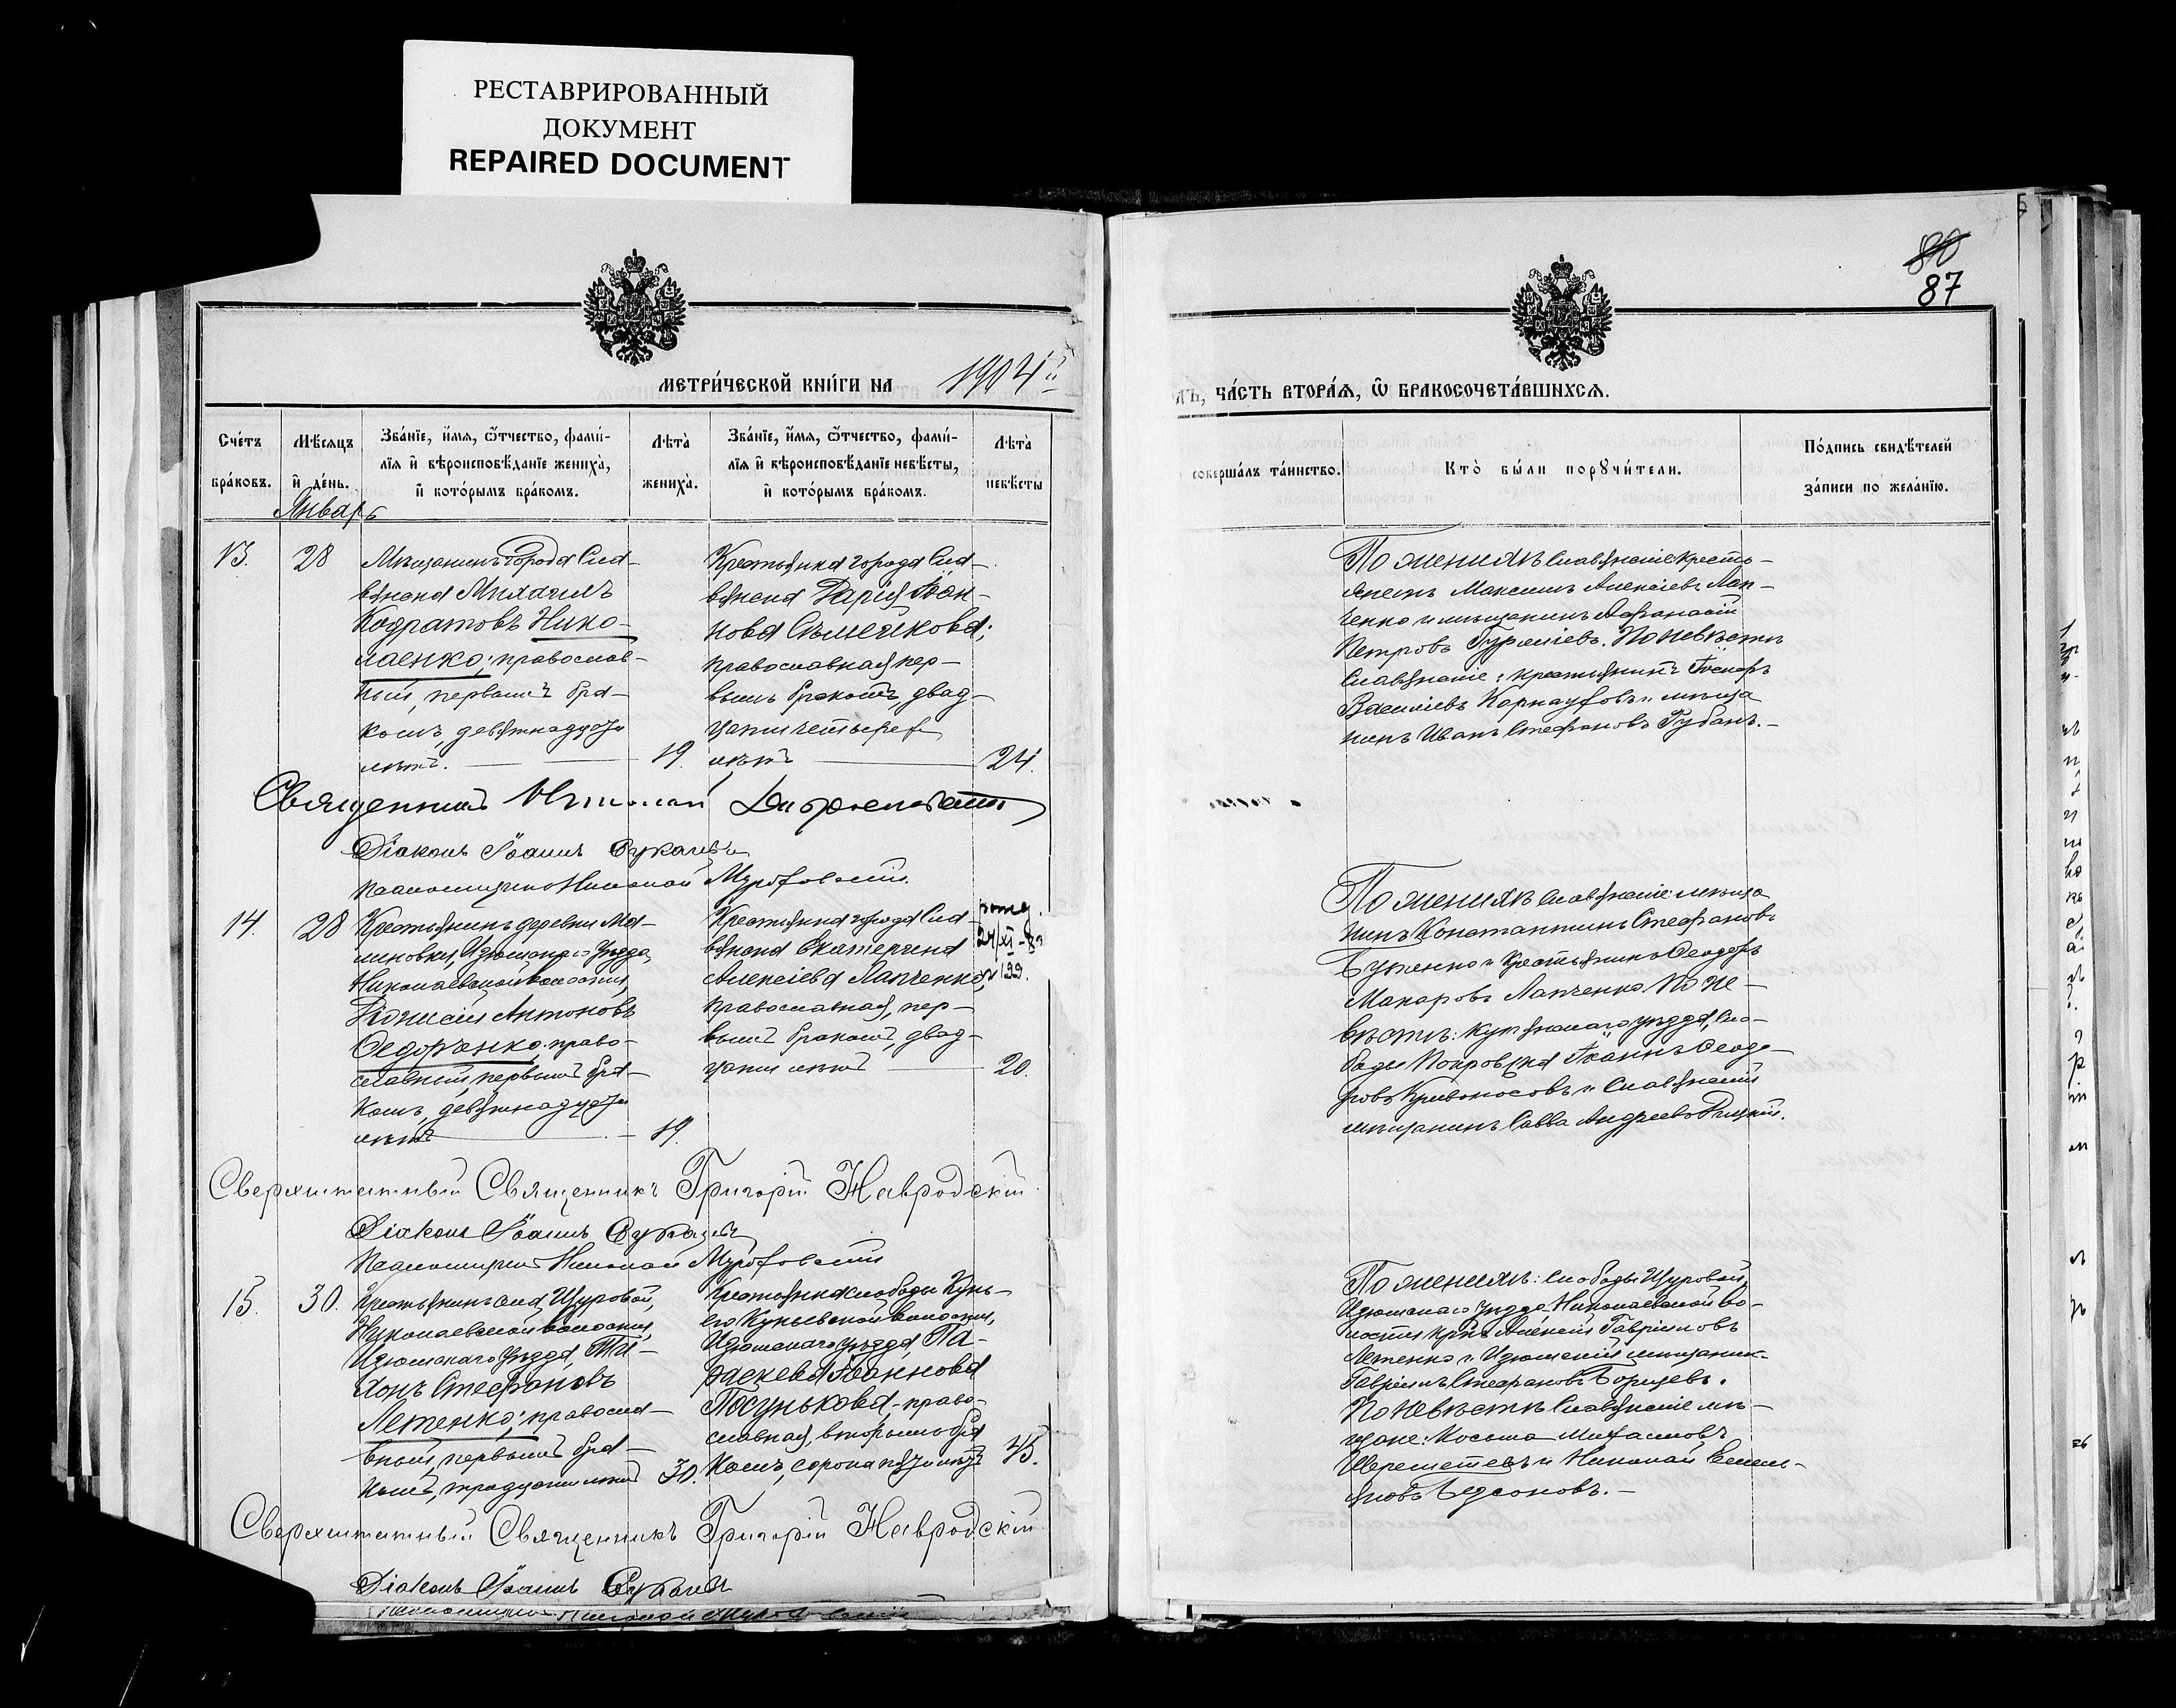 РЕСТАВРИРОВАННЫЙ
ДОКУМЕНТ
REPAIRED DOCUMENT
МЕТРИ́ЧЕСКОЙ КНИ́ГИ НА 1904й
Сче́тъ бра́ковъ.
Мѣ́сяцъ и҆ де́нь.
Зва́нїе, и҆́мя, ѻ҆́тчество, фами́-
лїя и҆ вѣроисповѣ́данїе жениха̀,
и҆ кото́рымъ бра́комъ.
Лѣта̀ жениха̀.
Зва́нїе, и҆́мя, ѻ҆́тчество, фами́-
лїя и҆ вѣроисповѣ́данїе невѣ́сты,
и҆ кото́рымъ бра́комъ.
Лѣта̀ невѣ́сты
Январь
13.
28
Мѣщанинъ города Сла-
вянска Михаилъ
Кодратовъ Нико-
лаенко; православ-
ный, первымъ бра-
комъ, девятнадцати
лѣтъ. 19.
Крестьянка города Сла-
вянска Дарія Іоан-
нова Сѣмейкова;
православная, пер-
вымъ бракомъ, двад-
цати четырехъ
лѣтъ 24.
Священникъ Николай
Діаконъ Іоаннъ
Псаломщикъ Николай
14.
28
Крестьянинъ деревни Ма-
линовки, Изюмскаго уѣзда,
Николаевской волости,
Діонисій Антоновъ
Федорченко, право-
славный, первымъ бра-
комъ, девятнадцати
лѣтъ 19.
Крестьянка города Сла-
вянска Екатерина
Алексіева Лапченко,
православная, пер-
вымъ бракомъ, двад-
цати лѣтъ 20.
Сверхштатный Священникъ Григорій Навродскій
Діаконъ Іоаннъ
Псаломщикъ Николай
15.
30.
Крестьянинъ села Щуровой,
Николаевской волости,
Изюмскаго уѣзда, Ти-
хонъ Стефановъ
Летенко; правосла-
вный, первымъ бра-
комъ, тридцати лѣтъ 30.
Крестьянка слободы Кунь-
его Куньевской волости,
Изюмскаго уѣзда, Па-
раскева Іоаннова
Посунькова, право-
славная, вторымъ бра
комъ, сорока пяти лѣтъ 45.
Сверхштатный Священникъ Григорій Навродскій
Діаконъ Іоаннъ
80
87
лъ, ча́сть втора́я, ѡ҆ бракосочета́вшихся.
соверша́лъ та́инство.
Кто̀ бы́ли порꙋчи́тели.
По́дпись свидѣ́телей
за́писи по жела́нїю.
По женихѣ Славянскіе: кресть-
янинъ Максимъ Алексіевъ Лап-
ченко и мѣщанинъ Афанасій
Петровъ Гуржіевъ. По невѣстѣ
Славянскіе: крестьянинъ
Василіевъ Карнауховъ и мѣща
нинъ Иванъ Стефановъ Губанъ.-
По женихѣ Славянскіе: мѣща
нинъ Константинъ Стефановъ
и крестьянинъ Феодоръ
Макаровъ Лапченко. По не-
вѣстѣ: Купянскаго уѣзда, сло-
боды Покровска Іоаннъ Феодо-
ровъ Кривоносовъ и Славянскій
мѣщанинъ Савва Андреевъ
По женихѣ: слободы Щуровой,
Изюмскаго уѣзда Николаевской во-
лости Алексій Гавріиловъ
Летенко и Изюмскій мѣщанин-
Гавріилъ Стефановъ Борщевъ.
По невѣстѣ Славянскіе мѣ-
щане: Косьма Михаиловъ
Шереметевъ и Николай Емель-
яновъ